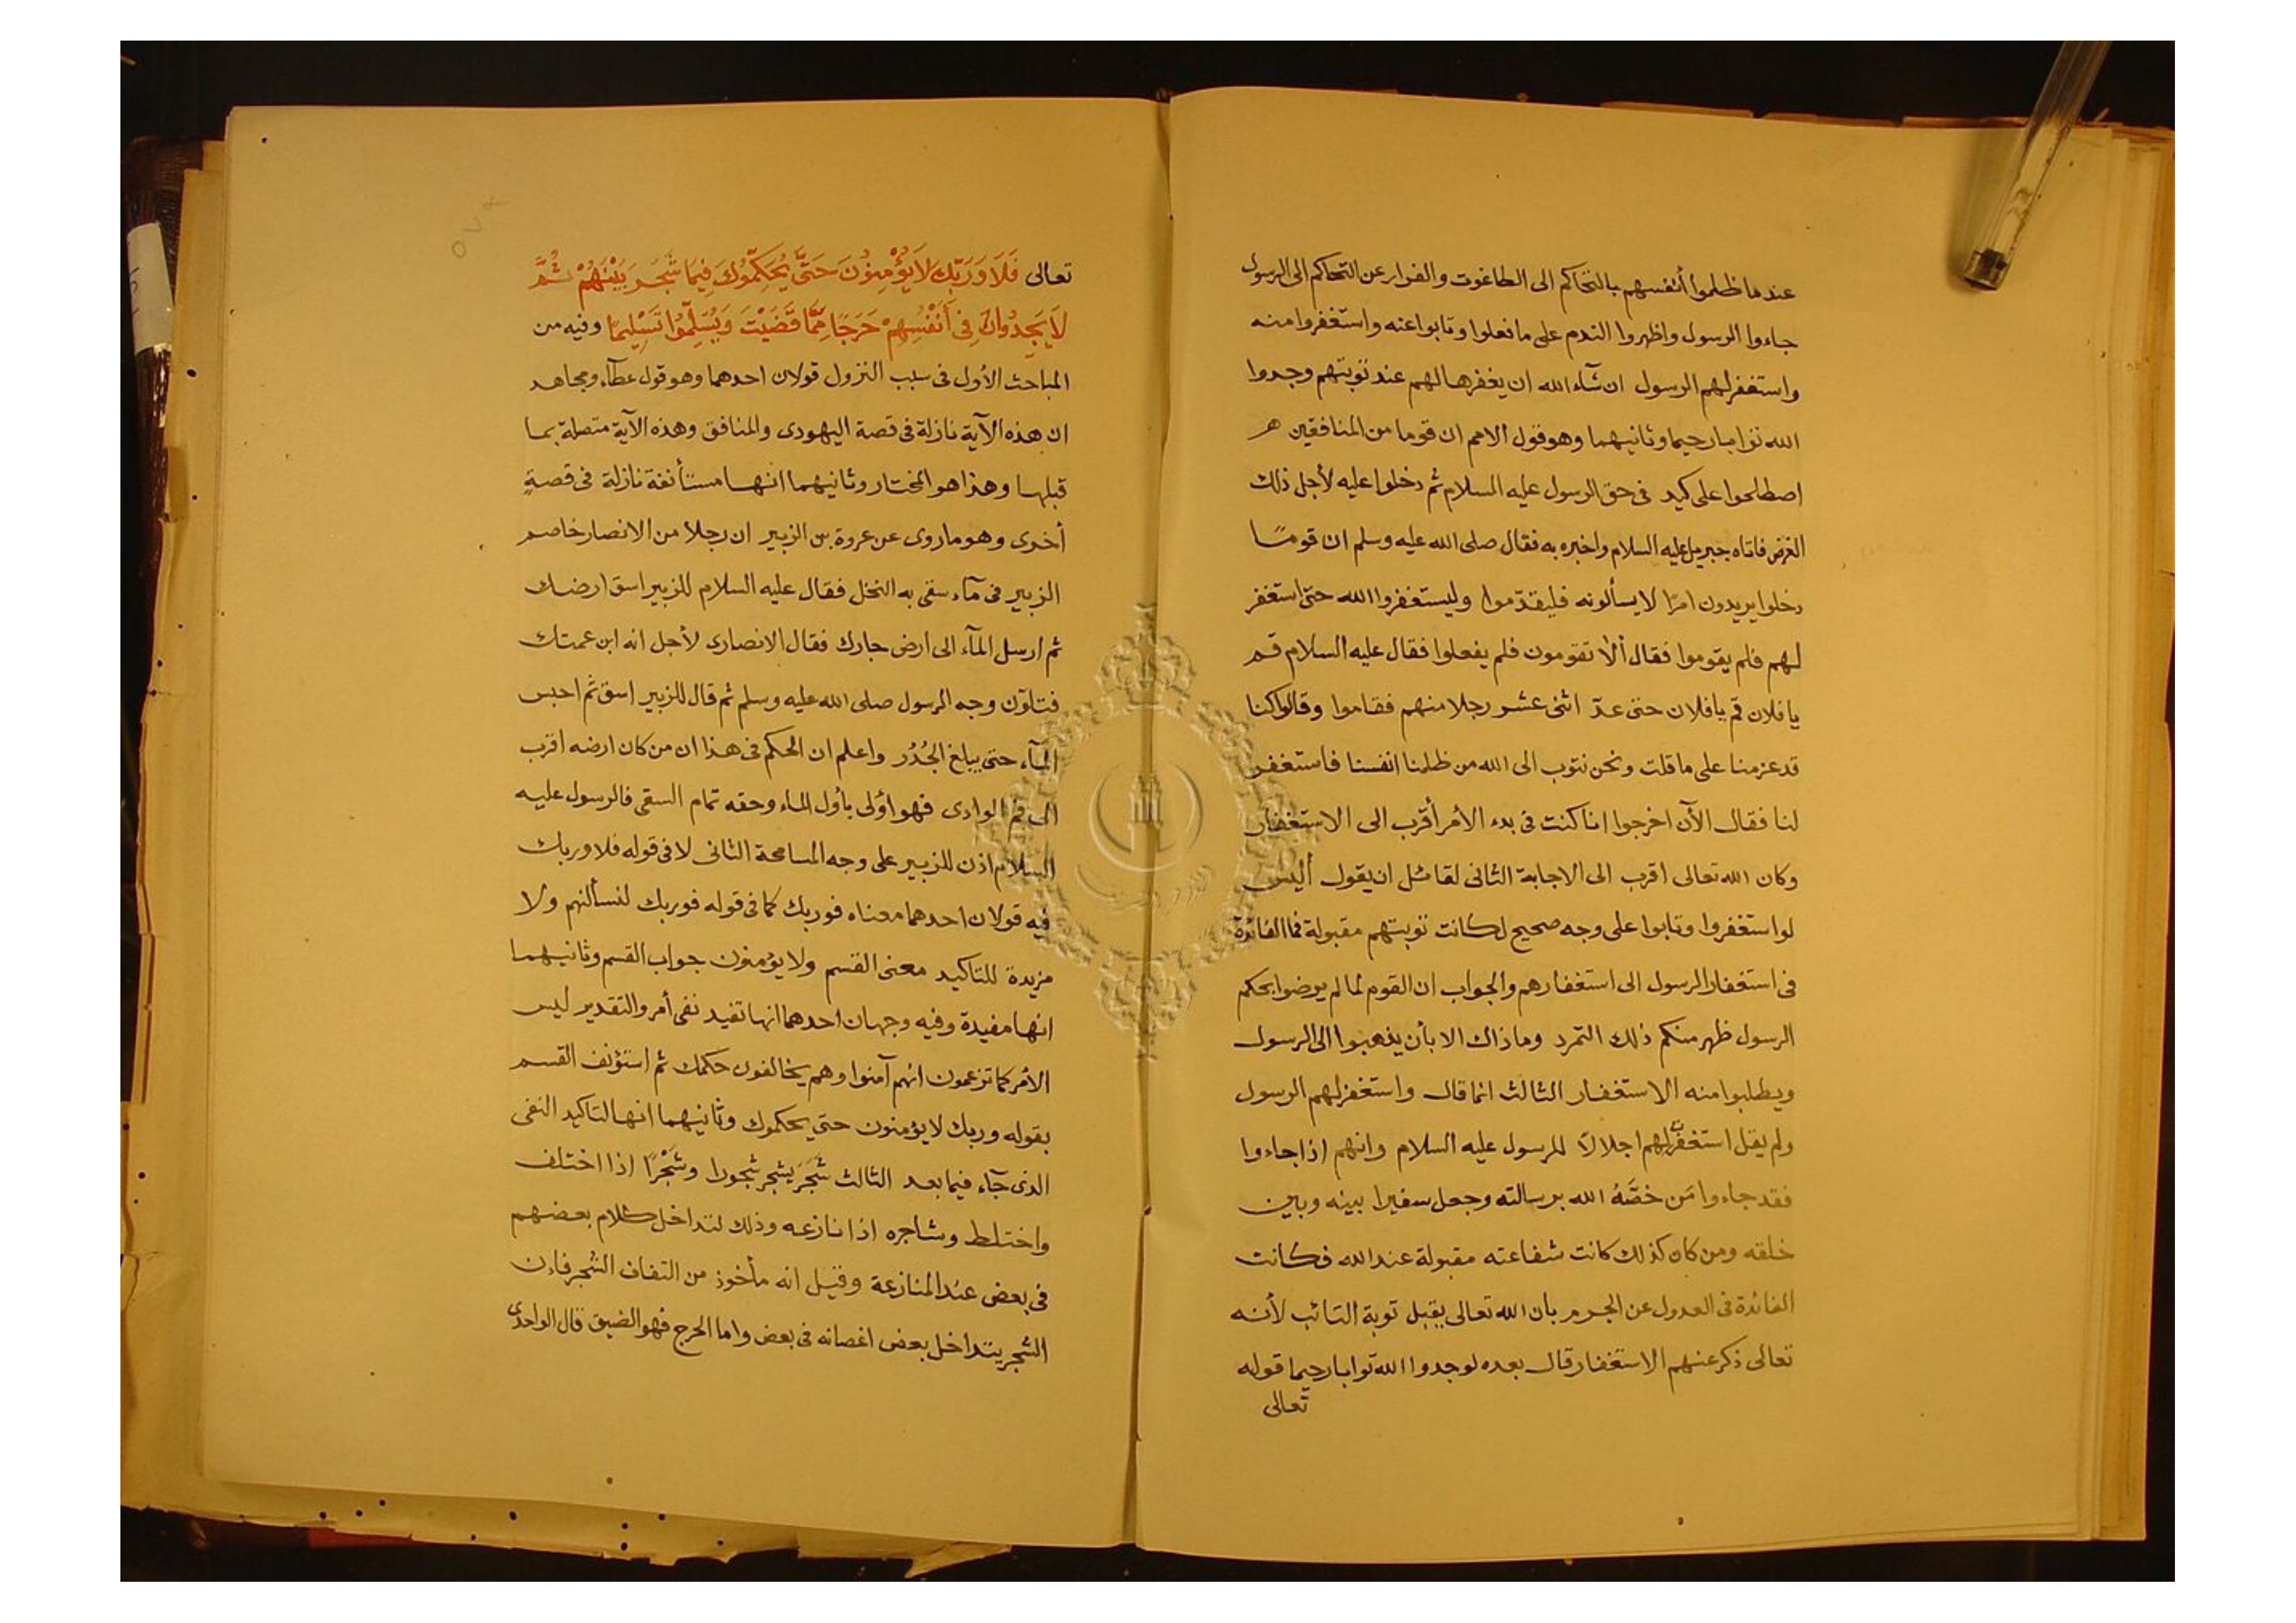 عندما ظلموا أنفسهم بالتحاكم الى الطاغوت والفرار عن التحاكم الى الرسول
جاءوا الرسول واظهروا الندم على ما فعلوا وتابوا عنه واستغفروا منه
واستغفر لهم الرسول ان شآء الله ان يغفرها لهم عند توبتهم وجدوا
الله توابا رحيما وثانيهما وهو قول الامم ان قوما من المنافقين
اصطلحوا على كيد فى حق الرسول عليه السلام ثم دخلوا عليه لأجل ذلك
الغرض فاتاه جبريل عليه السلام واخبره به فقال صلى الله عليه وسلم ان قومًا
دخلوا يريدون امرًا لا يسألونه فليقدّموا وليستغفروا الله حتى استغفر
لهم فلم يقوموا فقال ألا تقومون فلم يفعلوا فقال عليه السلام قم
يا فلان قم يا فلان حتى عدّ اثنى عشر رجلا منهم فقاموا وقالوا كنا
قد عزمنا على ما قلت ونحن نتوب الى الله من ظلمنا انفسنا فاستغفر
لنا فقال الآن اخرجوا انا كنت فى بدء الأمر أقرب الى الاستغفار
وكان الله تعالى اقرب الى الاجابة الثانى لقائل ان يقول أليس
لو استغفروا وتابوا على وجه صحيح لكانت توبتهم مقبولة فما الفائدة
فى استغفار الرسول الى استغفارهم والجواب ان القوم لما لم يرضوا بحكم
الرسول ظهر منكم ذلك التمرد وما ذاك الا بأن يذهبوا الى الرسول
ويطلبوا منه الاستغفار الثالث انما قال واستغفر لهم الرسول
ولم يقل استغفرت لهم اجلالا للرسول عليه السلام وانهم اذا جاءوا
فقد جاءوا مَن خصَّهُ الله برسالته وجعل سفيرا بينه وبين
خلقه ومن كان كذلك كانت شفاعته مقبولة عند الله فكانت
الفائدة فى العدول عن الجرم بان الله تعالى يقبل توبة التائب لأنه
تعالى ذكر عنهم الاستغفار قال بعده لوجدوا الله توابا رحيما قوله
تعالى
تعالى فَلَا وَرَبِّكَ لَا يُؤْمِنُونَ حَتَّى يُحَكِّمُوكَ فِيمَا شَجَرَ بَيْنَهُمْ ثُمَّ
لَا يَجِدُوا فِى أَنْفُسِهِمْ حَرَجًا مِمَّا قَضَيْتَ وَيُسَلِّمُوا تَسْلِيمًا وفيه من
المباحث الأول فى سبب النزول قولان احدهما وهو قول عطآء ومجاهد
ان هذه الآية نازلة فى قصة اليهودى والمنافق وهذه الآية متصلة بما
قبلها وهذا هو المختار وثانيهما انها مستأنفة نازلة فى قصةٍ
أخرى وهو ما روى عن عروة بن الزبير ان رجلا من الانصار خاصم
الزبير فى مآء سقى به النخل فقال عليه السلام للزبير اسق ارضك
ثم ارسل المآء الى ارض جارك فقال الانصارى لأجل انه ابن عمتك
فتلوّن وجه الرسول صلى الله عليه وسلم ثم قال للزبير اسق ثم احبس
المآء حتى يبلغ الجُدُر واعلم ان الحكم فى هذا ان من كان ارضه اقرب
الى فم الوادى فهو اولى بأول الماء وحقه تمام السقى فالرسول عليه
السلام اذن للزبير على وجه المسامحة الثانى لا فى قوله فلا وربك
فيه قولان احدهما معناه فوربك كما فى قوله فوربك لنسألنهم ولا
مزيدة للتاكيد معنى القسم ولا يؤمنون جواب القسم وثانيهما
انها مفيدة وفيه وجهان احدهما انها تفيد نفى أمر والتقدير ليس
الأمر كما تزعمون انهم آمنوا وهم يخالفون حكمك ثم استؤنف القسم
بقوله وربك لا يؤمنون حتى يحكموك وثانيهما انها لتاكيد النفى
الذى جآء فيما بعد الثالث شَجَرَ يشجر شجورا وشَجْرًا اذا اختلف
واختلط وشاجره اذا نازعه وذلك لتداخل كلام بعضهم
فى بعض عند المنازعة وقيل انه مأخوذ من التفاف الشجر فان
الشجر يتداخل بعض اغصانه فى بعض واما الحرج فهو الضيق قال الواحدى